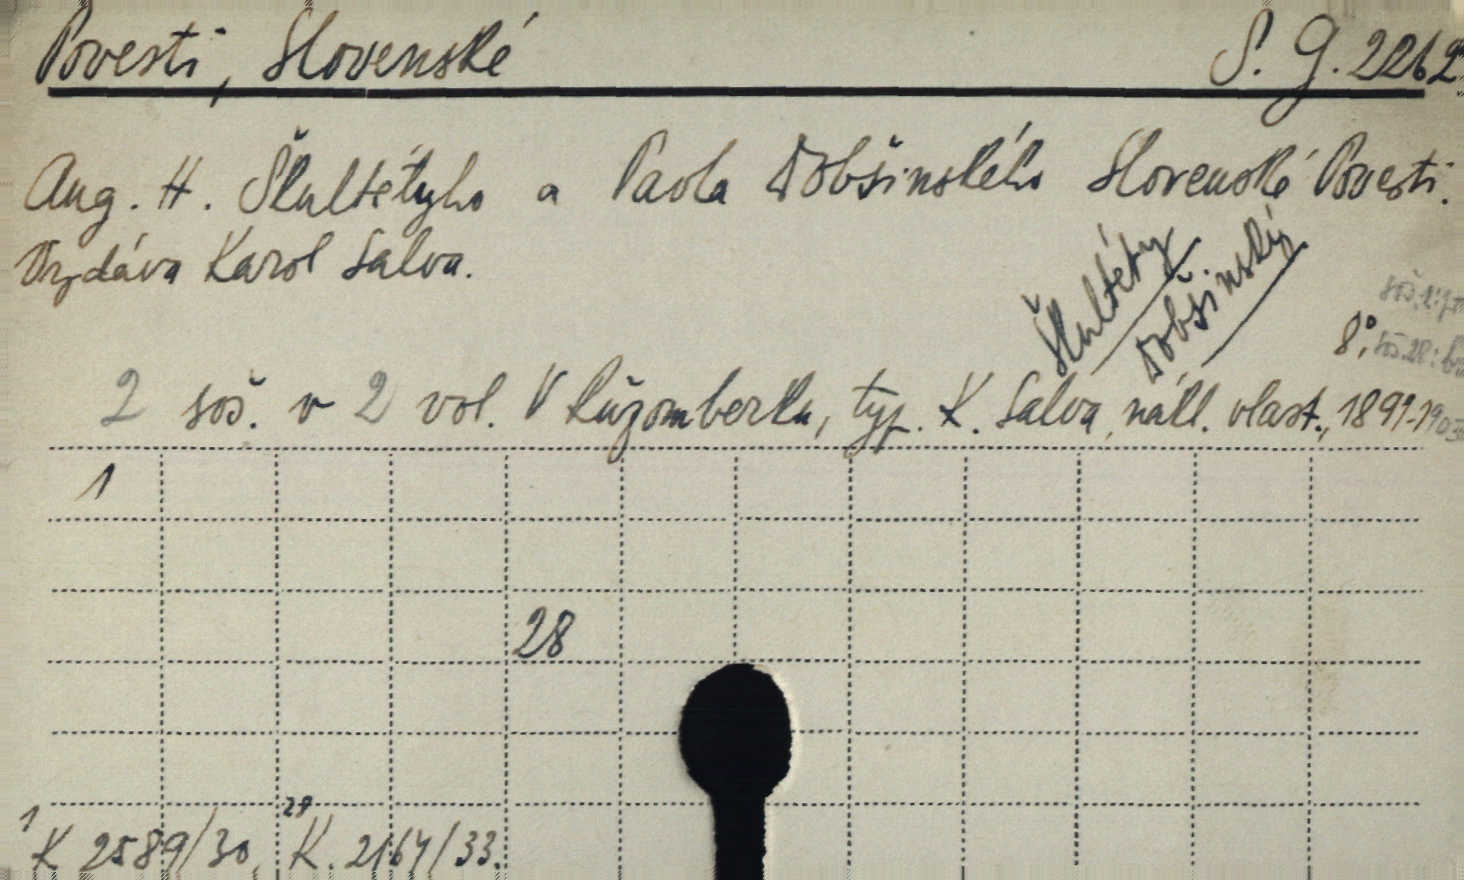 Povesti, Slovenské S. G. 2262
Aug. H. Škultétyho a Pavla Dobšinského Slovenské Povesti.
Vydáva Karol Salva.
Škultéty
Dobšinský
8°,
2 soš. v 2 vol. V Ružomberku, typ. K. Salva, nákl. vlast.,
1
28
1 K 2589/30,
K. 2164/33.